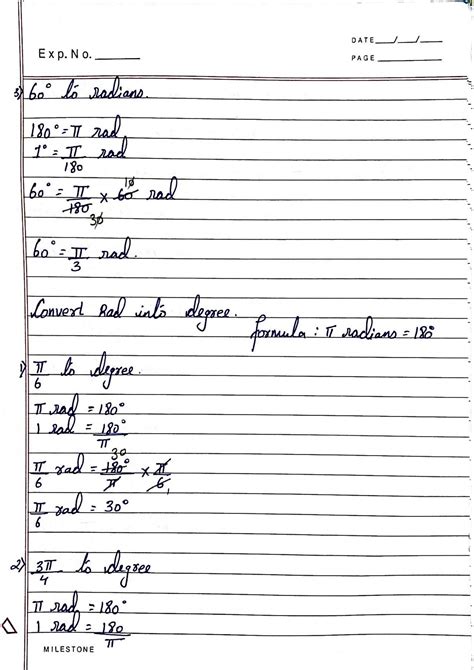 DATE __/__/__
Exp. No. ______
PAGE ______
3) 60° to radians.
180° = π rad
1° = π/180 rad
60° = π/180 × 60 rad
10
30
60° = π/3 rad.
Convert Rad into degree.
formula : π radians = 180°
1) π/6 to degree.
π rad = 180°
1 rad = 180°/π
30
π/6 rad = 180°/π × π/6
1
π/6 rad = 30°
2) 3π/4 to degree
π rad = 180°
1 rad = 180/π
MILESTONE